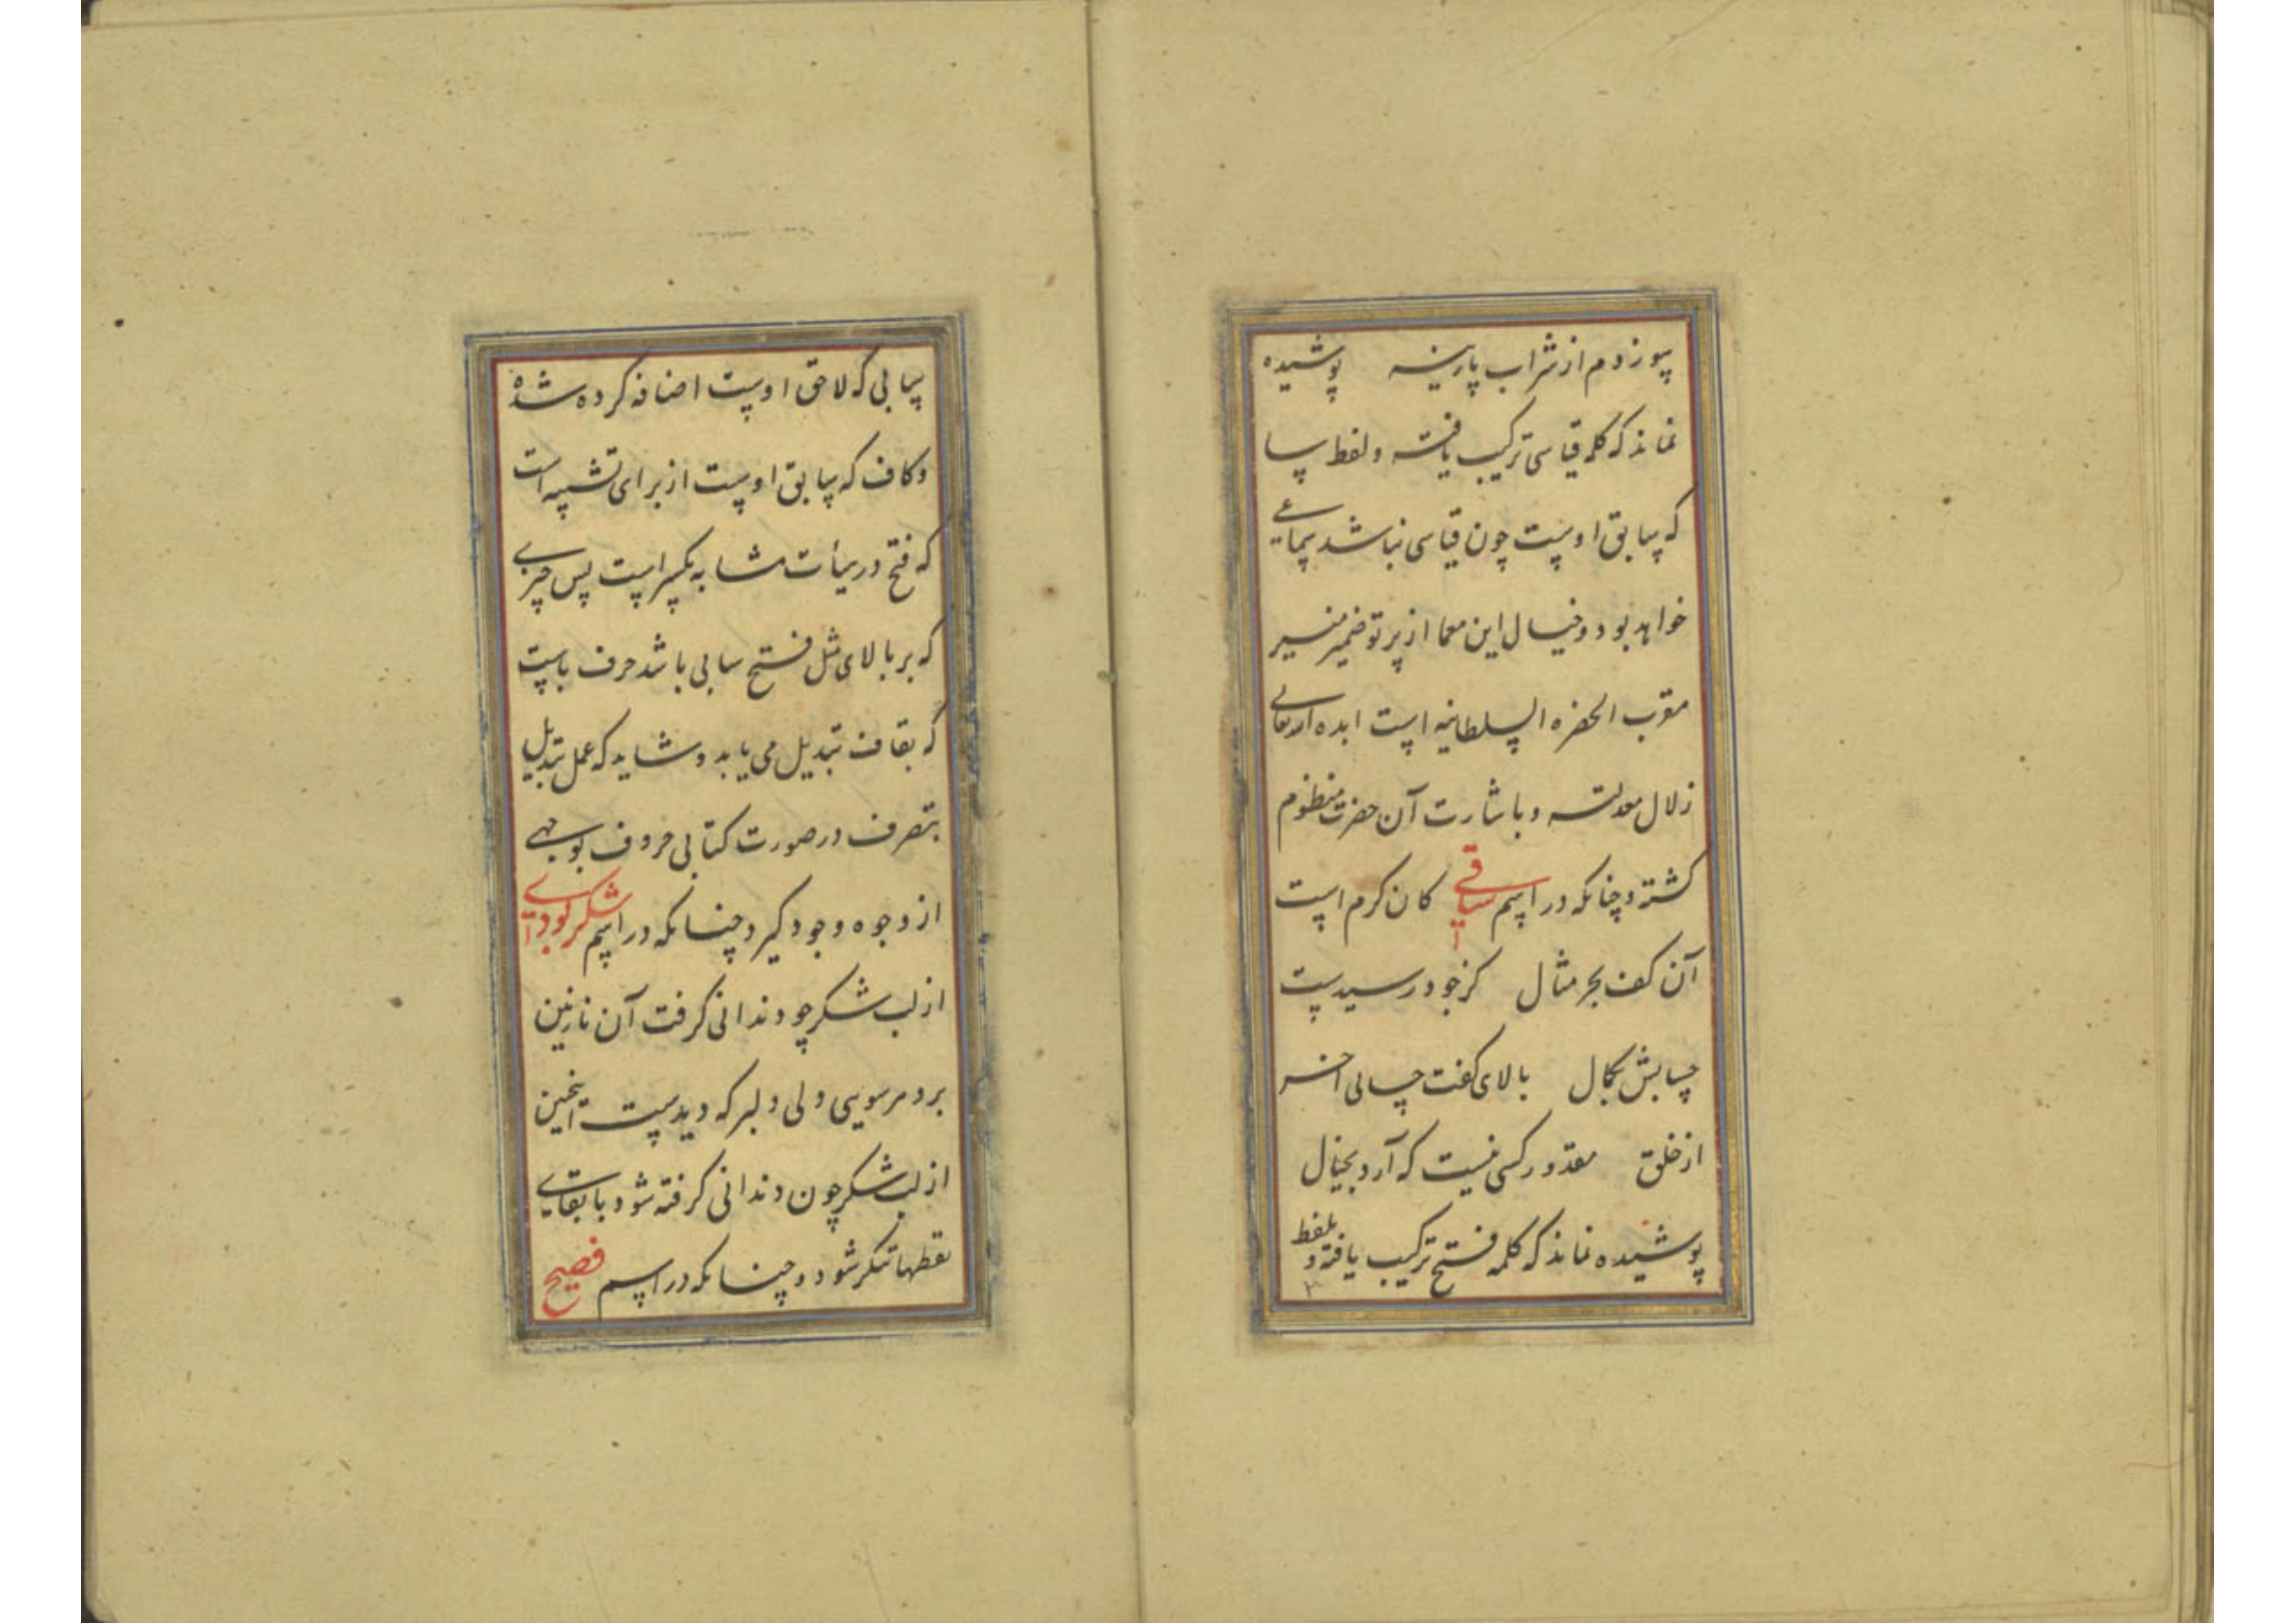 سوزدم از شراب پارینه پوشیده
نماند که کلمه قیاسی ترکیب یافته و لفظ سا
که سابق اوست چون قیاسی نباشد سماعی
خواهد بود و خیال این معما از پرتو ضمیر منیر
مقرب الحضره السلطانیه است ابده الله تعالی
زلال معدلته و باشارت آن حضرت منظوم
گشته و چنانکه در اسم ساقی کان کرم است
آن کف بحر مثال کز جود رسیدست
حسابش بکمال بالای کفت حسابی آخر
از خلق مقدور کسی نیست که آرد بخیال
پوشیده نماند که کلمه فتح ترکیب یافته و بلفظ
سابی که لاحق اوست اضافه کرده شده
و کاف که سابق اوست از برای تشبیه است
که فتح در هیأت مشابه بکسر است پس چیزی
که بر بالای مثل فتح سابی باشد حرف باست
که بقاف تبدیل می یابد و شاید که عمل تبدیل
بتصرف در صورت کتابی حروف بوجهی
از وجوه وجود گیرد چنانکه در اسم شکر
از لب شکر چو دندانی گرفت آن نازنین
برد مر سویی دلی دلبر که دیدست اینچنین
از لب شکر چون دندانی گرفته شود با بقای
نقطها تنکر شود و چنانکه در اسم فصیح